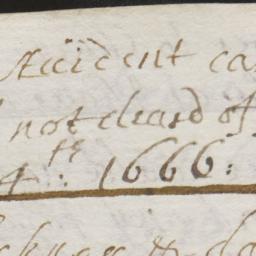 Accident ca
not cleard of
4th: 1666: